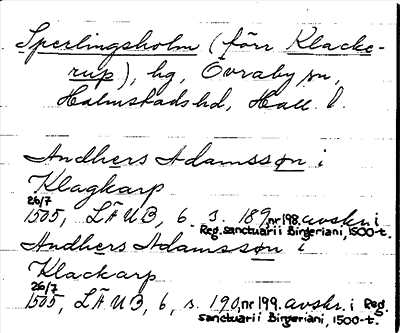 Sperlingsholm (förr Klacke-
rup), hg, Övraby sn,
Halmstads hd, Hall. l.
Andhers Adamsson i
Klagkarp
26/7
1505, LÄUB, 6 s. 189, nr 198. avskr. i
Reg. sanctuarii Birgeriani, 1500-t.
Andhers Adamsson i
Klackarp
26/7
1505, LÄUB, 6, s. 190, nr 199. avskr. i Reg.
sanctuarii Birgeriani, 1500-t.